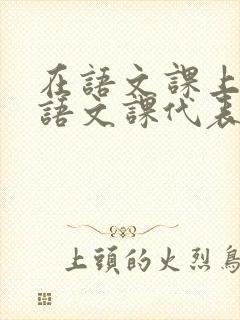 在語文課上
語文課代表
上頭的火烈鳥